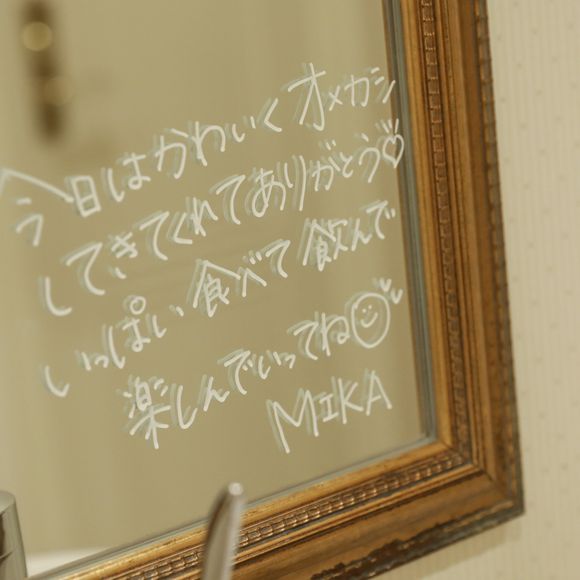 今日はかわいくオメカシ
してきてくれてありがとう♡
いっぱい食べて飲んで
楽しんでいってね
MIKA